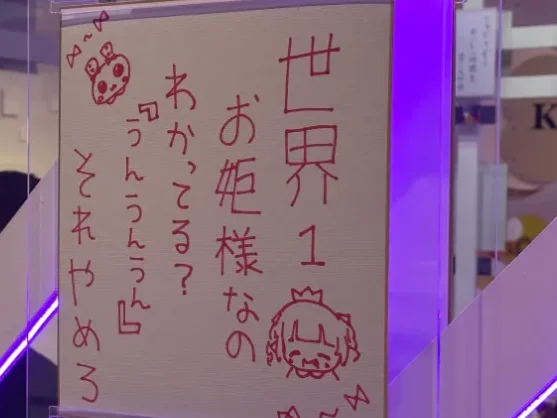 世界1
お姫様なの
わかってる?
『うんうんうん』
それやめろ
K